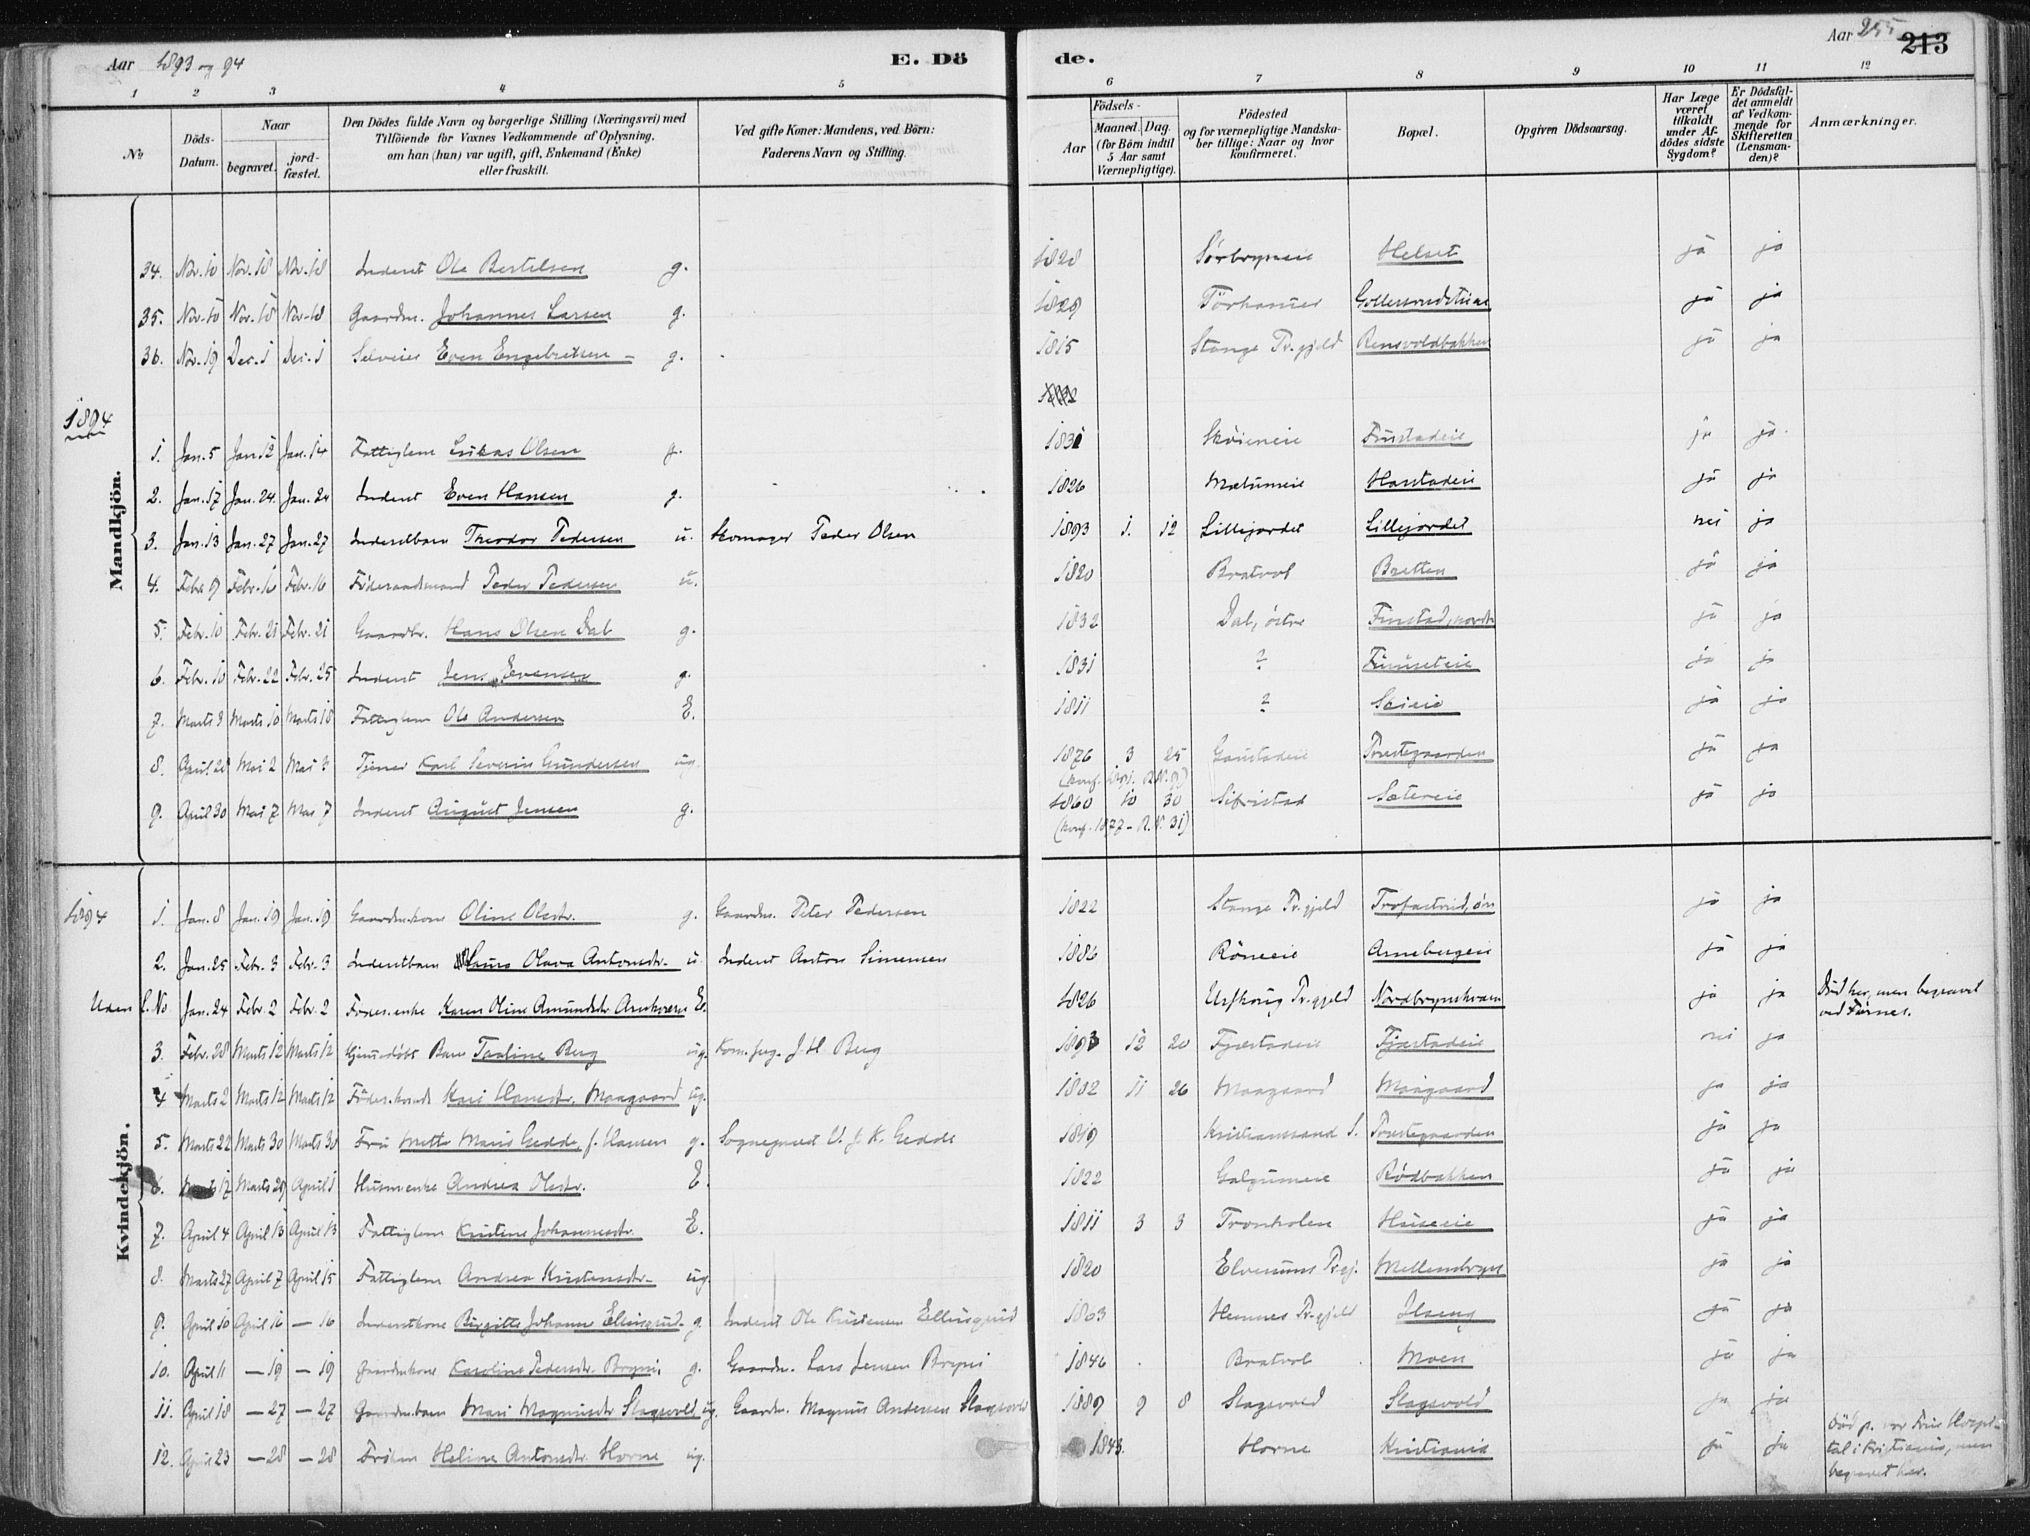 Aar 1893 og 94 E. Dö de. Aar 255 213
1 2 3 4 5 6 7 8 9 10 11 12
No
Döds-Datum.
Naar
begravet.
jordfæstet.
Den Dödes fulde Navn og borgerlige Stilling (Næringsvei) med
Tilföiende for Voxnes Vedkommende af Oplysning,
om han (hun) var ugift, gift, Enkemand (Enke)
eller fraskilt.
Ved gifte Koner: Mandens, ved Börn:
Faderens Navn og Stilling.
Födsels-
Aar
Maaned. Dag.
(for Börn indtil
5 Aar samt
Værnepligtige).
Födested
og for værnepligtige Mandskaber tillige: Naar og hvor
konfirmeret.
Bopæl.
Opgiven Dödsaarsag.
Har Læge
været
tilkaldt
under Afdödes sidste
Sygdom?
Er Dödsfaldet anmeldt
af Vedkommende for
Skifteretten
(Lensmanden)?
Anmærkninger.
Mandkjön.
34. Nov. 10 Nov. 18 Nov. 18 Inderst Ole Bertelsen g. 1828 Sørbryneie Helset ja ja
35. Nov. 10 Nov. 18 Nov. 18 Gaardm. Johannes Larsen g. 1829 ja ja
36. Nov. 19 Dec. 1 Dec. 1 Selveier Even Engebretsen g. 1815 Stange Pr.gjeld Rensvoldbakken ja ja
1894
1. Jan. 5 Jan. 12 Jan. 14 Fattiglem Lukas Olsen g. 1831 Skøieneie Finstadeie ja ja
2. Jan. 17 Jan. 24. Jan. 24 Inderst Even Hansen g. 1826 Mælumeie Harstadeie ja ja
3. Jan. 13 Jan. 27 Jan. 27 Inderstbarn Theodor Pedersen u. Skomager Peder Olsen 1893 1. 12 Lillejordet Lillejordet nei ja
4. Febr. 9 Febr. 16 Febr. 16 Föderaadsmand Peder Pedersen u. 1820 Bratvol Bretten ja ja
5. Febr. 10 Febr. 21 Febr. 21 Gaardbr. Hans Olsen Dal g. 1832 Dal, östre Finstad, nordre ja ja
6. Febr. 10 Febr. 22 Febr. 25 Inderst Jens Evensen g. 1831 ? ja ja
7. Marts 3 Marts 10 Marts 18 Fattiglem Ole Andersen E. 1811 ? ja ja
8. April 28 Mai 2 Mai 3 Tjener Karl Severin Gundersen ug. 1876 3 25 Gaustadeie Præstegaarden ja ja
9. April 30 Mai 7 Mai 7 Inderst August Jensen g. 1860 10 30 Sifristad Sætereie ja ja
(konf. 1877 - R.N. 31)
Kvindekjön.
1894
1. Jan. 8 Jan. 19 Jan. 19 Gaardm.kone Oline Olsdtr. g. Gaardm. Peter Pedersen 1822 Stange Pr.gjeld ja ja
2. Jan. 25 Febr. 3 Febr. 3 Inderstbarn Laura Olava Antonsdtr. u. Inderst Anton Simensen 1886 Röneeie Arnebergeie ja ja
Uden L.No Jan. 24 Febr. 2 Febr. 2 Födes.enke Karen Oline Amundsdtr. E. 1826 Urskoug Pr.gjeld Nordbrynskvæen ja ja Död her, men begravet
ved Furnes.
3. Febr. 28 Marts 12 Marts 12 Hjemmedöbt Barn Pauline Berg ug. J. H Berg 1893 12 20 Fjæstadeie Fjæstadeie nei ja
4 Marts 2 Marts 12 Marts 12 Kari Hansdtr. Maagaard ug. 1812 11 26 Maagaard Maagaard ja ja
5. Marts 22 Marts 30 Marts 30 Fru Mette Marie Gedde, f. Hansen g. Sognepræst U. J. K. Gedde 1819 Kristianssand S. Præstegaarden ja ja
6. Marts 17 Marts 29 April 1 Husm.enke Andrea Olsdtr. E. 1822 Galgumeie Rødbakken ja ja
7. April 4 April 13 April 13 Fattiglem Kristine Johannesdtr. E. 1811 3 3 Tronholen Huseeie ja ja
8. Marts 27 April 7 April 15 Fattiglem Andrea Kristensdtr. ug. 1820 Elverums Pr.gj. Mellembryn ja ja
9. April 10 April 16 — 16 Inderstkone Birgitte Johanne Ellingsrud g. Inderst Ole Kristensen Ellingsrud 1863 Hemnes Pr.gjeld Ilseng ja ja
10. April 11 — 19 — 19 Gaardm.kone Karoline Pedersdtr. Bryni g. Gaardm. Lars Jensen Bryni 1846 Bratvol Moen ja ja
11. April 18 — 27 — 27 Gaardm.barn Mari Magnusdtr. Slagsvold ug. Gaardm. Magnus Andersen Slagsvold 1889 9 8 Slagsvold Slagsvold ja ja
12. April 23 — 28 — 28 Fröken Heline Antonsdtr. Horne ug. 1843. Horne Kristiania ja ja Död p. vor Frue Hospital i Kristiania, men
begravet her.